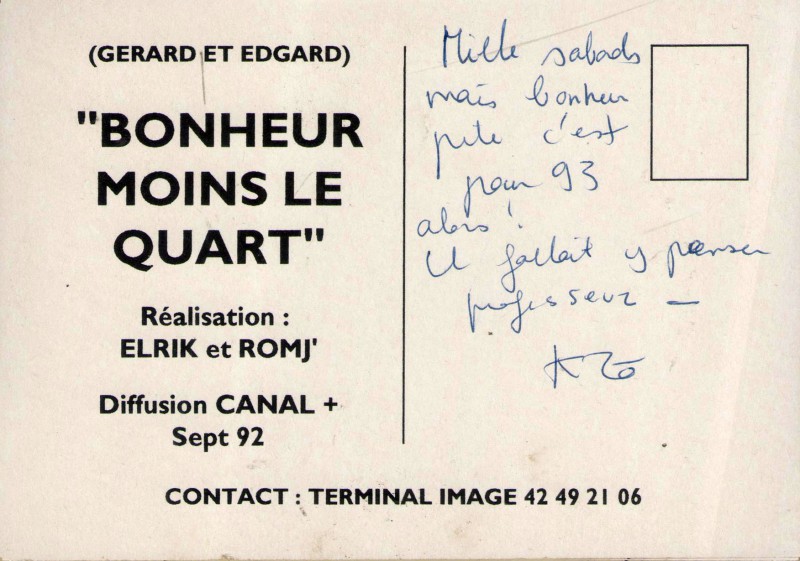 (GERARD ET EDGARD)
"BONHEUR
MOINS LE
QUART"
Réalisation :
ELRIK et ROMJ'
Diffusion CANAL +
Sept 92
Mille sabads
mais bonheur
c'est
pour 93
alors !
Il fallait y penser
professeur —
CONTACT : TERMINAL IMAGE 42 49 21 06